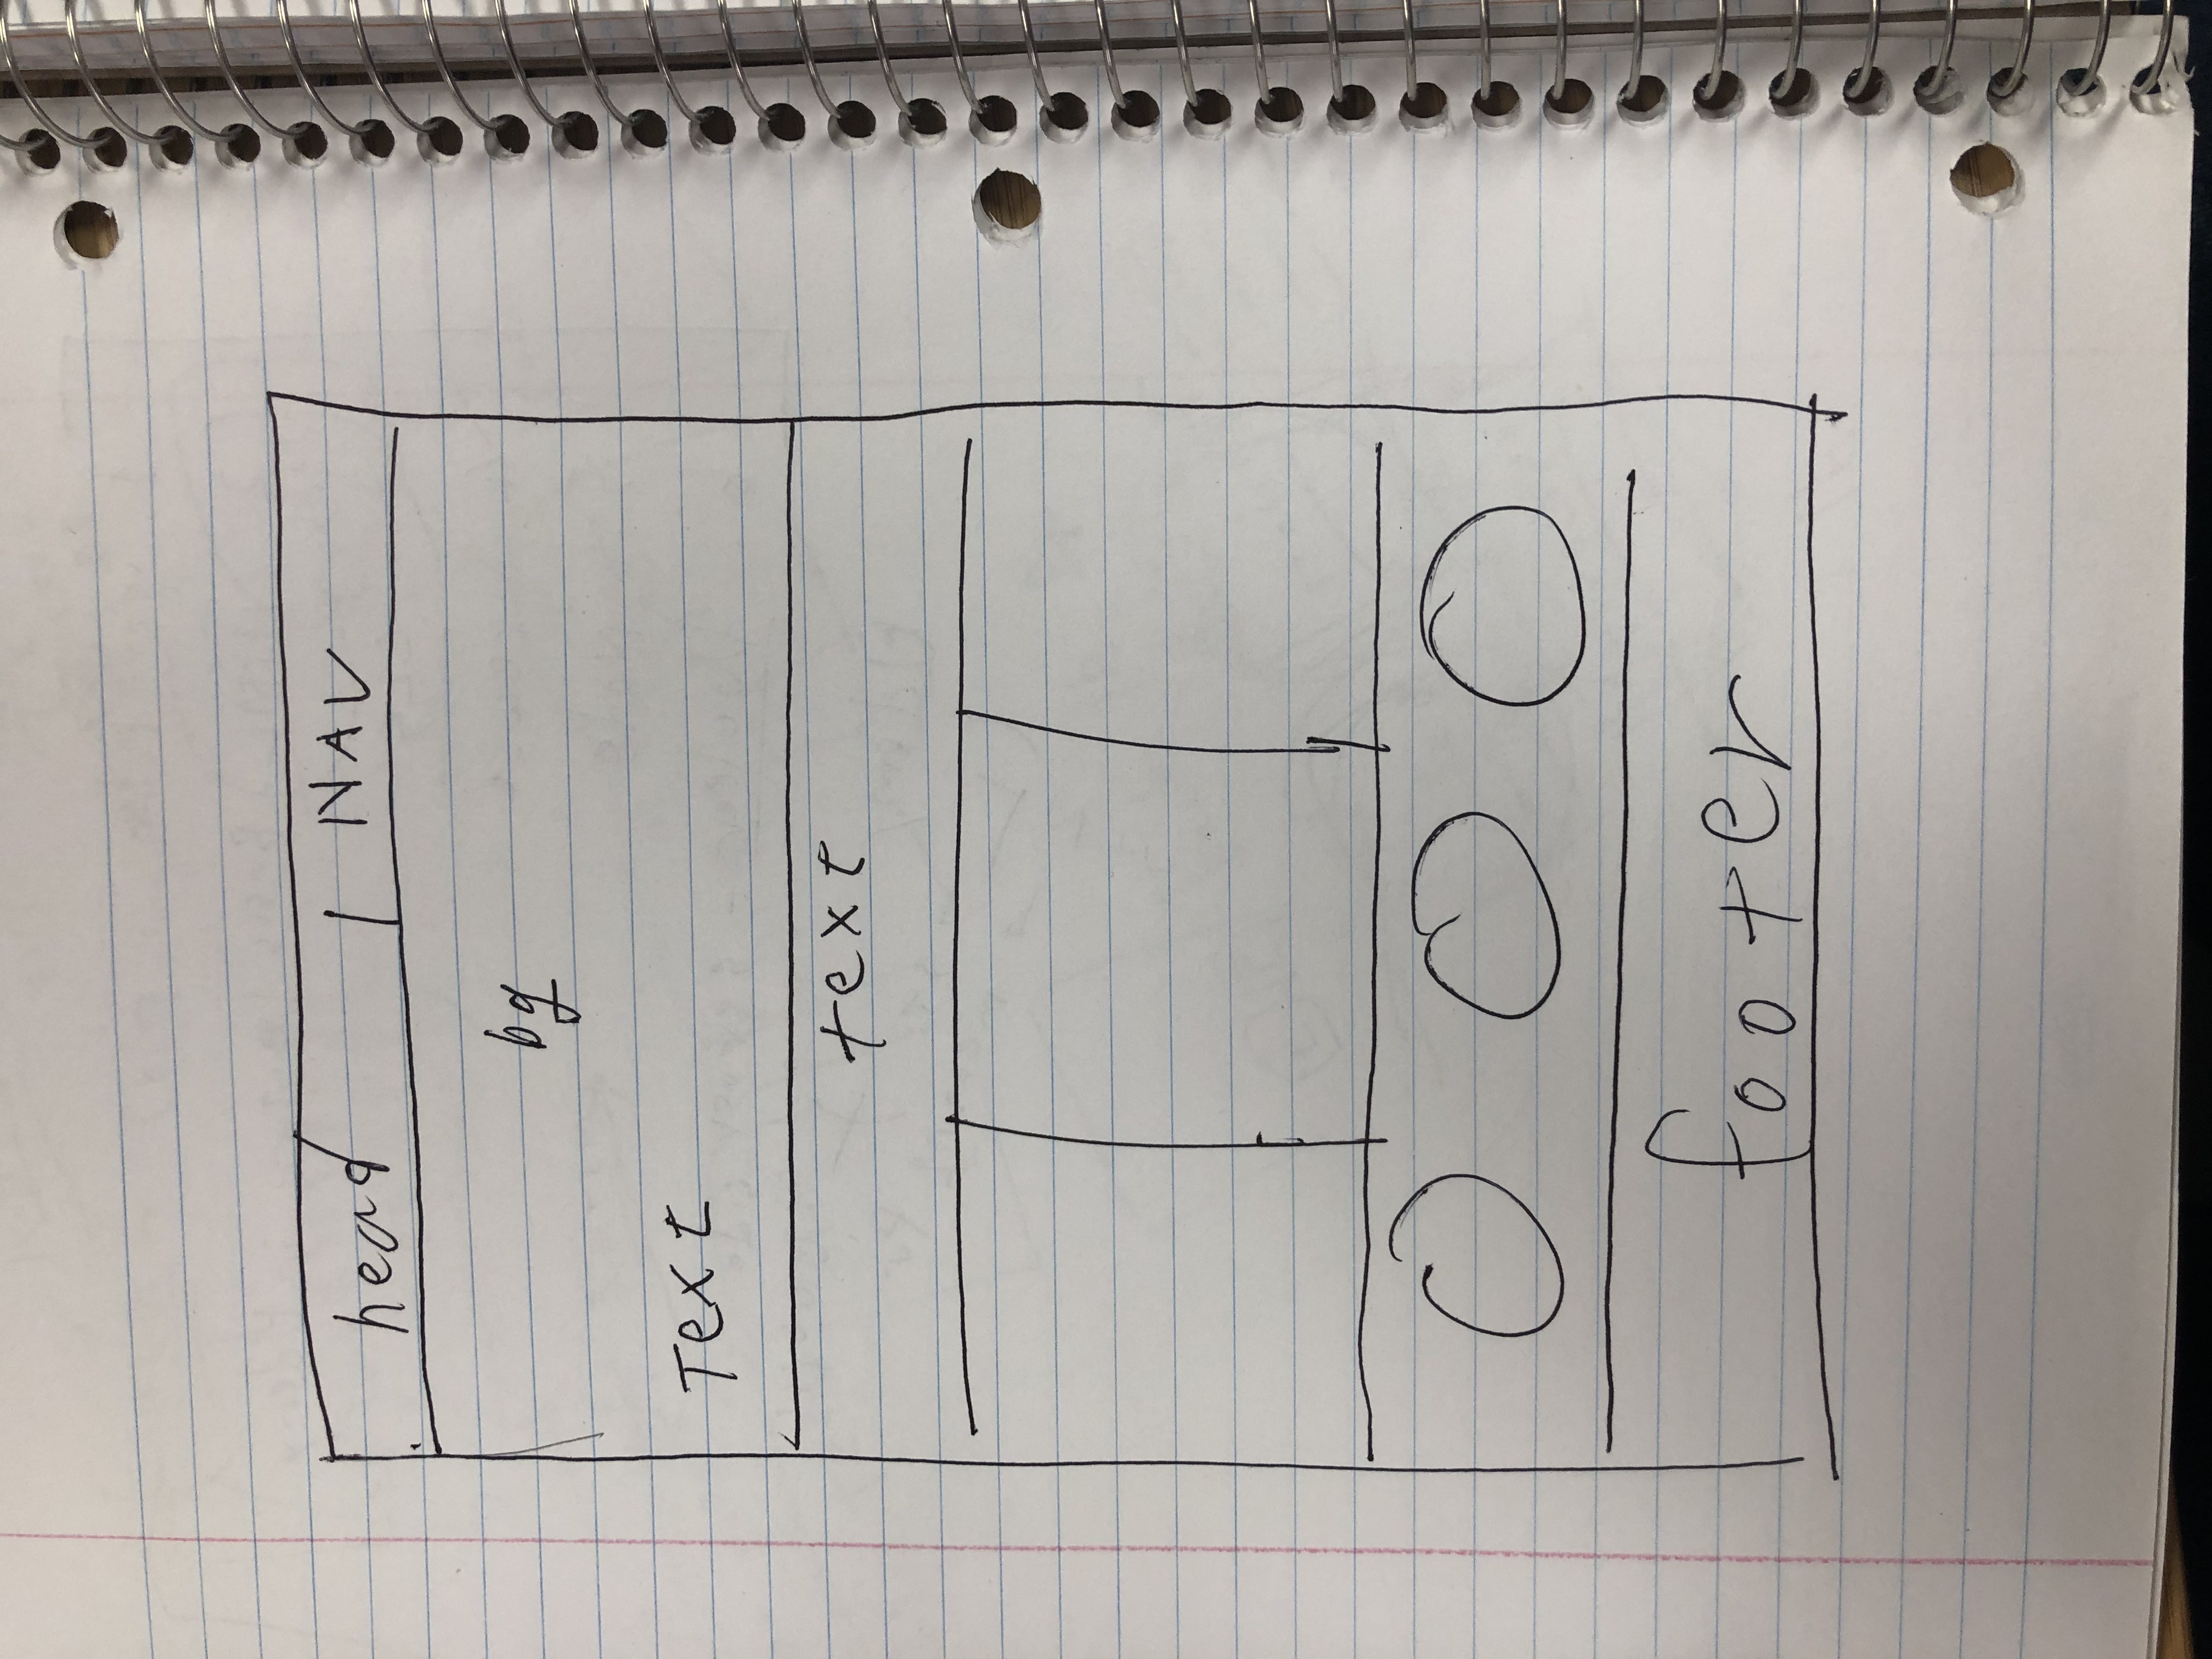 head | NAV
bg
Text
text
footer